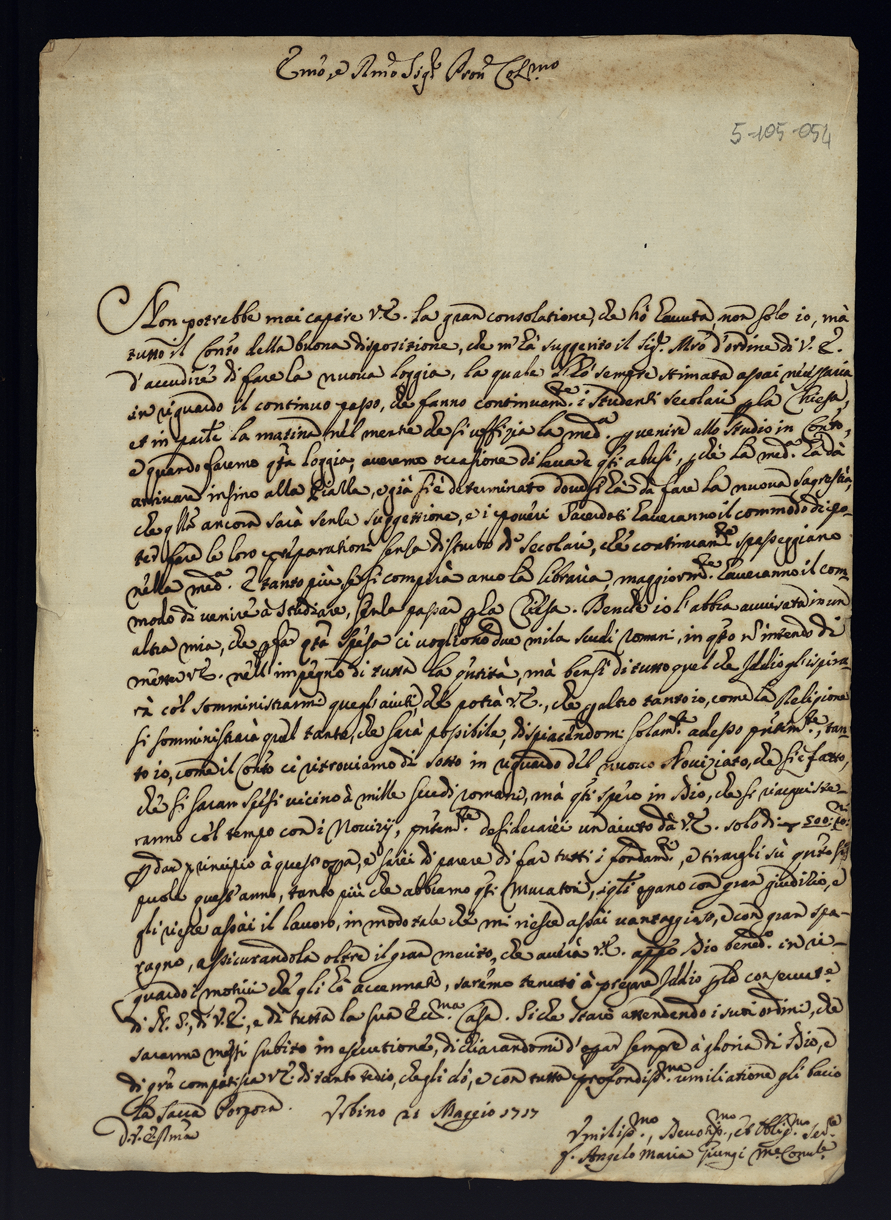 Emo, e Rmo Sigr Pron Colmo
5-105-054
Non potrebbe mai capire V.E. la gran consolatione, che hò havuta, non solo io, mà
tutto il Conto della buona dispositione, che m'hà suggerito il Sigr Mro d'ordine di V.E.
d'accudire di fare la nuova loggia, la quale hò sempre stimata assai necessaria
in riguardo il continuo passo, che fanno continuamte i Studenti Secolari p la Chiesa,
et in partre la matina nel mentre che si uffizia la meda p venire allo Studio in Conto,
e quando faremo qta loggia, averemo occasione di levare qti abusi, pche la meda hà da
arrivare insino alla Piazza, e già si è determinato doversi là dà fare la nuova Sagrestia,
che qlla ancora sarà senza suggettione, e i poveri Sacerdoti haveranno il commodo di po-
ter fare le loro preparationi senza disturbo de Secolari, che continuamte spasseggiano
nella meda. E tanto più se si compirà anco la libraria, maggiormte haveranno il com-
modo di venire à studiare, senza passar p la Chiesa. Benche io l'abbia avvisata in un
altra mia, che p far qta spesa ci vogliono due mila scudi romani, in qto n intendo di
mettere V.E. nell'impegno di tutta la qntità, mà bensi di tutto quel che Iddio gl'ispira-
rà col somministrarmi quegli aiuti, che potrà V.E., che p altro tanto io, come la Religione
si somministrarà quel tanto, che sarà possibile, dispiacendomi solamte adesso pntemte, tan-
to io, come il Conto ci ritroviamo di sotto in riguardo del nuovo Noviziato, che si è fatto,
che si saran spesi vicino à mille scudi romani, mà qti spero in Dio, che si riacquiste-
ranno col tempo con i Novizij, pntemte desiderarei un aiuto dà V.E. solo di 500:
p dar principio à quest'opa, e sarei di parere di far tutti i fondamti, e tirargli sù qnto si
puole quest'anno, tanto più che abbiamo qti Muratori, i qli opano con gran giudizio, e
gli riesce assai il lavoro, in modo tale che mi riesce assai vantaggioso, e con gran spa-
ragno, assicurandola oltre il gran merito, che averà V.E. appo Dio benedo in ri-
guardo i motivi che gli hò accennato, saremo tenuti à pregare Iddio p la conservate
di N.S., di V.E., e di tutta la sua Eccma Casa. Siche starò attendendo i suoi ordini, che
saranno messi subito in esecutione, dichiarandomi d'opar sempre à gloria di Dio, e
di gra compatisca V.E. di tanto tedio, che gli dò, e con tutta profondissma umiliatione gli bacio
la Sacra Porpora. Urbino 21 Maggio 1717
D.V. Emma
Umilissmo, Devotissmo, et Obligmo Serre
f. Angelo Maria Giungi Mre Convle